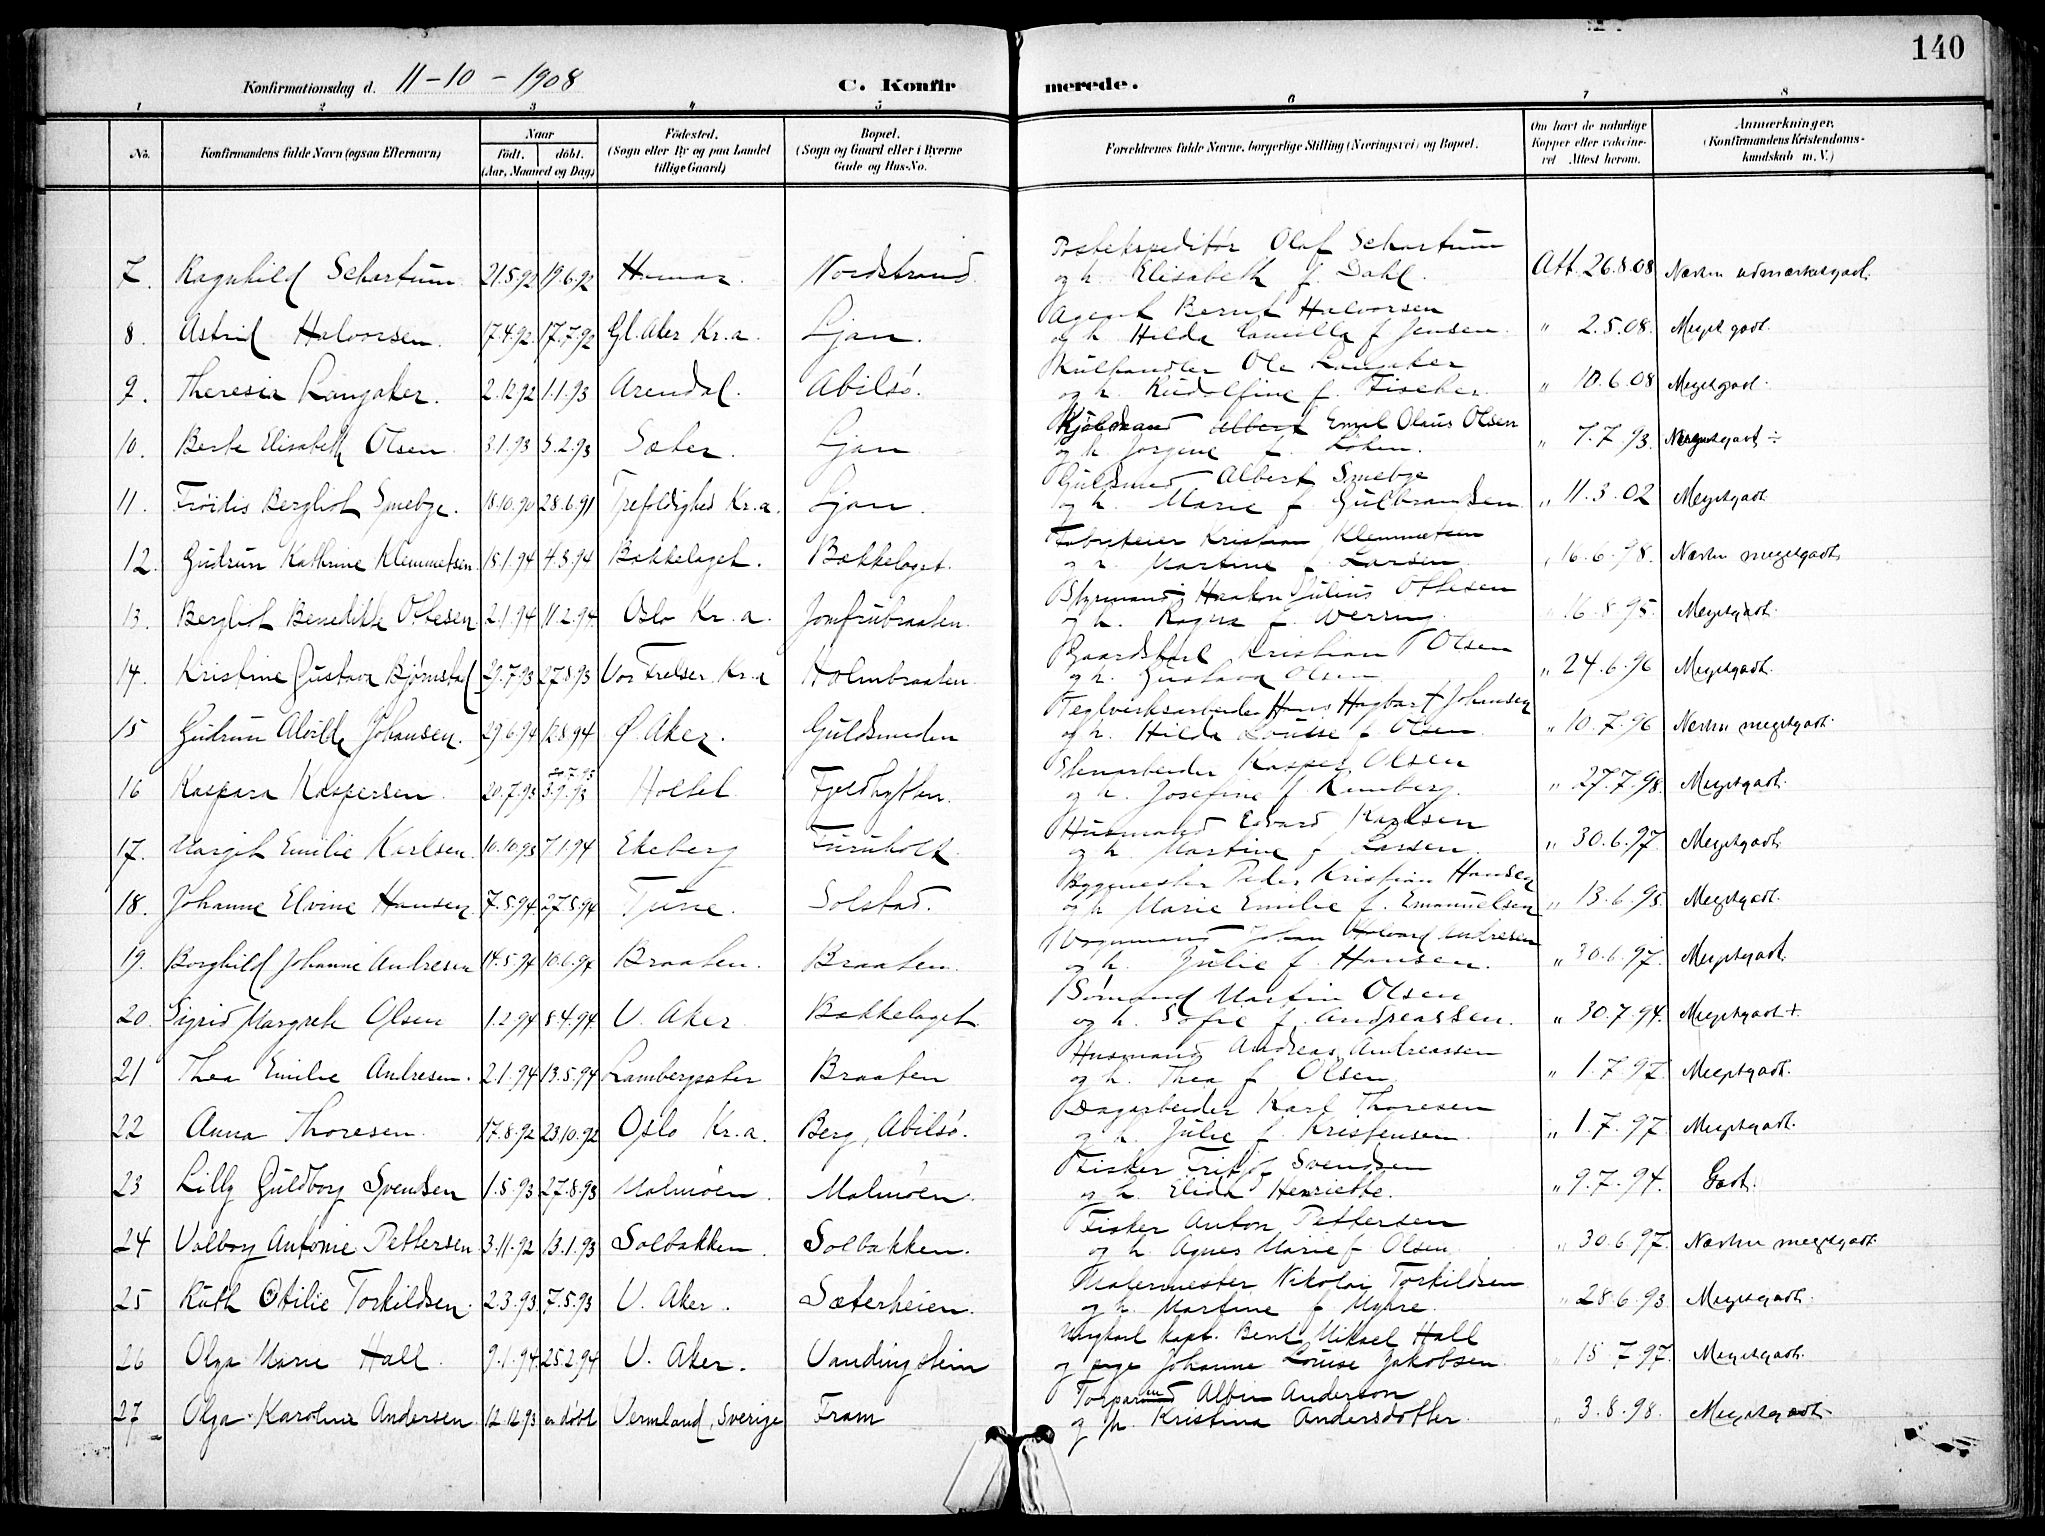 140
Konfirmationsdag d. 11-10-1908 C. Konfirmerede.
1 2 3 4 5 6 7 8
No. Konfirmandens fulde Navn (ogsaa Efternavn) Naar født. døbt. (Aar, Maaned og Dag) Fødested. (Sogn eller By og paa Landet tillige Gaard) Bopæl. (Sogn og Gaard eller i Byerne Gade og Hus-No. Forældrenes fulde Navne, borgerlige Stilling (Næringsvei) og Bopæl. Om havt de naturlige Kopper eller vakcineret Attest herom. Anmærkninger. (Konfirmandens Kristendomskundskab m. V.)
Postekspeditør Olaf Schartum
7. Ragnhild Schartum 21.5.92 19.6.92 Hamar. Nordstrand og h. Elisabeth f. Dahl. Att. 26.8.08 Næsten udmærketgodt.
Agent Bernt Halvorsen
8. Astrid Halvorsen. 17.4.92 17.7.92 Gl. Aker Kr.a. Ljan. og h. Hilda Camilla f Jensen. " 2.5.08. Meget godt.
Kulhandler Ole Langaker
9. Theresia Langaker. 2.12.92 1.1.93 Arendal. Abilsø. og h. Rudolfine f. Fischer. " 10.6.08 Megetgodt.
Kjøbmand Albert Emil Olaus Olsen
10. Berte Elisabeth Olsen 3.1.93 5.2.93 Sæter. Ljan og h. Jørgine f. " 7.7.93. Megetgodt ÷
Guldsmed Albert Smebye
11. Frøidis Bergliot Smebye. 18.10.90 28.6.91 Trefoldighed Kr.a. Ljan. og h. Marie f. Gulbrandsen " 11.3.02 Megetgodt
Kristian Klemmetsen
12. Gudrun Kathrine Klemmetsen 15.1.94 4.3.94 Bækkelaget. Bækkelaget. og h. Martine f. Larsen " 16.6.98. Næsten megetgodt
Styrmand Haakon Julius Ottesen
13. Bergliot Benedikte Ottesen 2.1.94 11.2.94 Oslo Kr.a. Jomfrubraaten. og h. Ragna f. Werring. " 16.8.95. Megetgodt.
Gaardskarl Kristian Olsen
14. Kristine Gustava Bjørnstad 29.7.93 27.8.93 Vor Frelser Kr.a Holmbraaten. og h. Gustava Olsen " 24.6.96 Megetgodt.
Teglverksarbeider Hans Hagbart Johansen
15 Gudrun Alvilde Johansen. 29.6.94 12.8.94 Ø. Aker. Guldsmeden og h. Hilda Louise f. Olsen " 10.7.96 Næsten megetgodt.
Stenarbeider Kasper Olsen
16 Kaspara Kaspersen. 20.7.93 3.9.93 Holtet Fjeldhytten. og h. Josefine f. Ramberg. " 27.7.98. Megetgodt.
Husmand Edvard Karlsen
17. Margit Emilie Karlsen. 10.10.93 7.1.94 Ekeberg Furuholt. og h. Martine f Larsen. " 30.6.97. Megetgodt
Bygmester Peder Kristian Hansen
18. Johanne Elvine Hansen 7.5.94 27.5.94 Tjøme. Solstad. og h Marie Emilie f. Emanuelsen " 13.6.95 Megetgodt.
Vognmand Johan Halvard Andresen
19. Borghild Johanne Andresen 14.5.94 10.6.94 Braaten. Braaten. og h. Julie f. Hansen. " 30.6.97. Megetgodt.
Sømand Martin Olsen
20. Sigrid Margrete Olsen 1.2.94 8.4.94 V. Aker Bækkelaget og h. Sofie f. Andreassen. " 30.7.94. Megetgodt +
Husmand Andreas Andreassen
21 Thea Emilie Andresen. 2.1.94 13.5.94 Lambergsæter Braaten og h. Thea f Olsen " 1.7.97. Megetgodt.
Dagarbeider Karl Thoresen
22 Anna Thoresen. 17.8.92 23.10.92 Oslo Kr.a. Berg, Abilsø. og h. Julie f. Kristensen " 1.7.97. Megetgodt.
Fisker Svendsen
23 Lilly Guldborg Svendsen 1.5.93 27.8.93 Malmøen. Malmøen. og h. Elida Henriette. " 9.7.94. Godt.
Fisker Anton Pettersen
24 Valborg Antonie Pettersen 3.11.92 13.1.93 Solbakken. Solbakken. og h. Agnes Marie f Olsen. " 30.6.97. Næsten megetgodt.
Malermester Nikolai Torkildsen
25 Ruth Otilie Torkildsen. 2.3.93. 7.5.93 V. Aker. Sæterheien. og h. Martine f Myhre. " 28.6.93. Megetgodt.
Ungkarl kapt. Bent Mikael Hall
26 Olga Marie Hall. 9.1.94. 25.2.94 V. Aker. Vandingstein og pige Johanne Louise Jakobsen. " 15.7.97. Megetgodt.
Torparmand Albin Anderson
27 Olga Karolina Andersen 12.12.93 er døbt Vermland, Sverige Fram og h Kristina Andersdotter. " 3.8.98. Megetgodt.